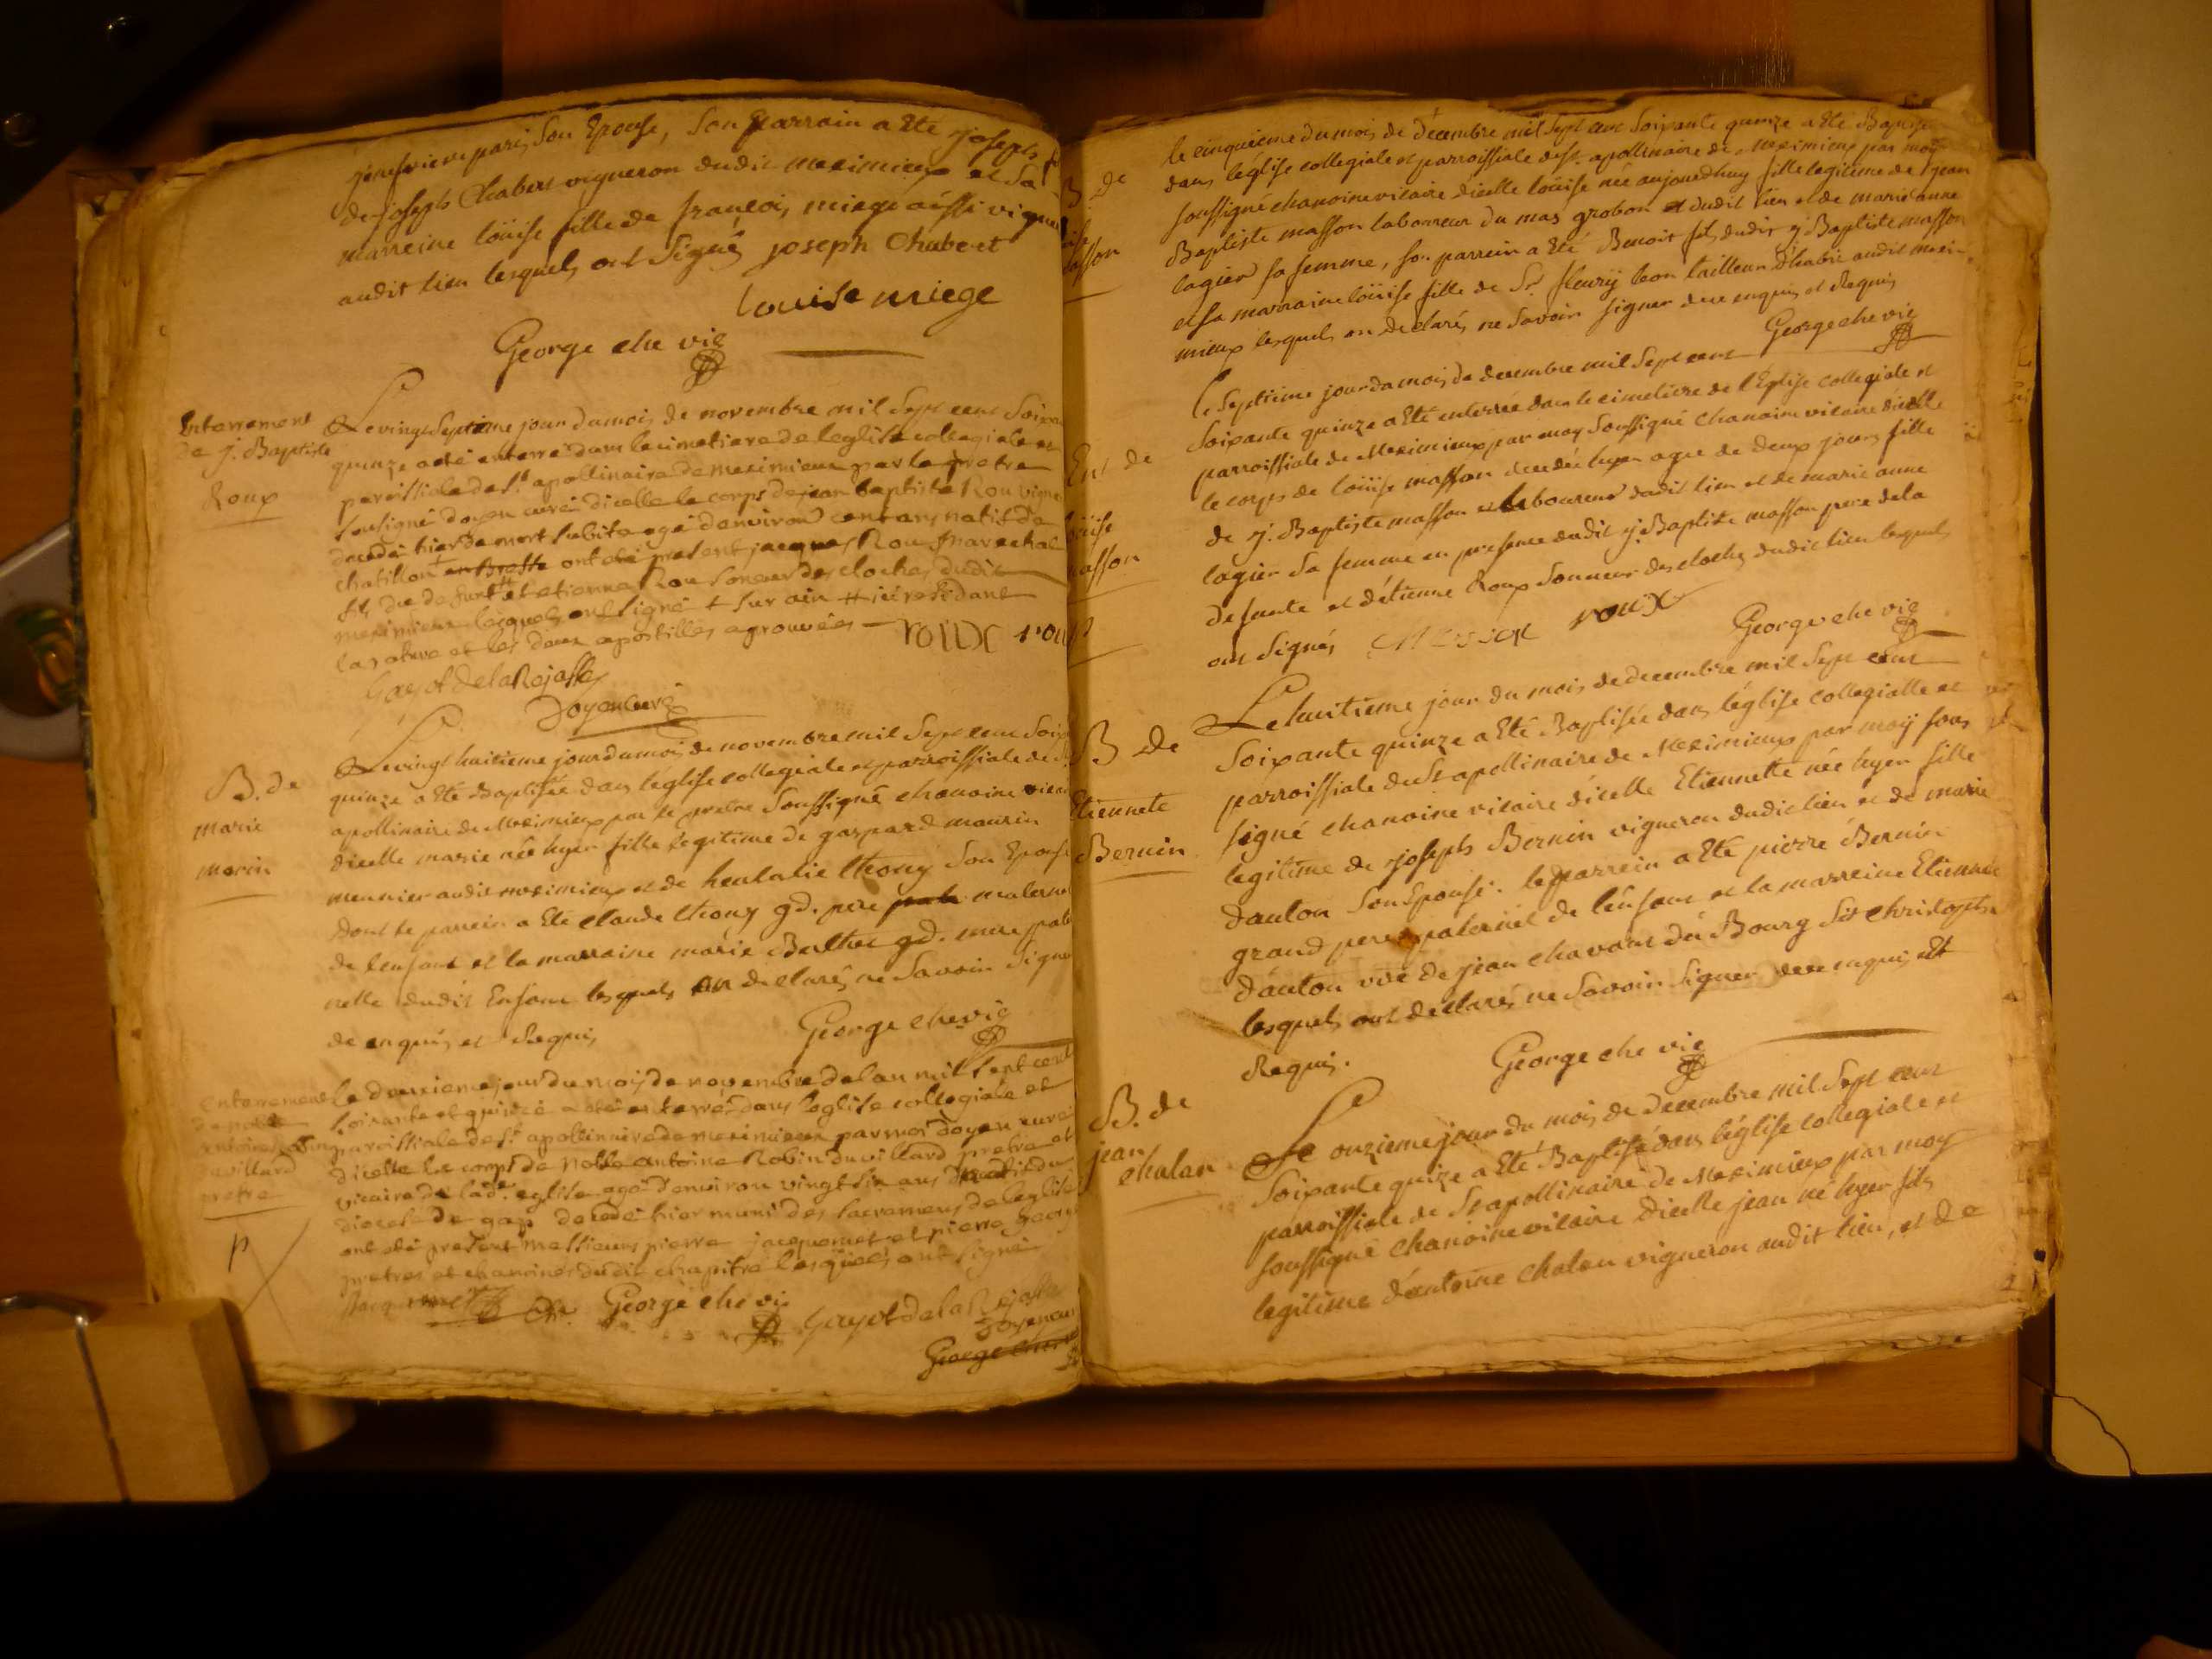 genevieve paris son Epouse, son parrain a Eté joseph
de joseph Chabert vigneron dudit meximieux et sa
marreine loüise fille de françois miege aussi vigne
audit lieu lesquels ont signé joseph Chabert
louise miege
George che vié
Enterrement
de j. Baptiste
Roux
Le vingt Septieme jour du mois de novembre mil Sept cent Soixa
quinze a eté enterré dans le cimetiere de leglise collegiale et
paroissiale de st apollinaire de meximieux par le pretre
sousigné doyen curé dicelle le corps de jean baptiste Rou vigne
decedé hier de mort subite agé denviron cent ans natif de
chatillon en Bresse ont eté present jacques Rou marechal
fils du defunt et etienne Rou soneur des cloches dudit
meximieux lesquels ont signé + sur ain # icy residant
la rature et les deux apostilles aprouvées roux rou
Gayot de la Rejasse
Doyen Curé
B. de
marie
morin
Le vingt huitieme jour du mois de novembre mil Sept cent Soix
quinze a Eté Baptisée dans leglise collegiale et parroissiale de S
apollinaire de Meximieux par le pretre Soussigné chanoine vicai
dicelle marie née hyer fille legitime de gaspard maurin
meunier audit meximieux et de heulalie thony Son Epouse
dont le parrein a Eté claude thony gd. pere mater
de lenfant et la marraine marie Berthet gd. mere pater
nelle dudit Enfant lesquels on declarés ne Savoir Signer
de enquis et Requis
George che vié
enterrement
de noble
antoine Robin
duvillard
pretre
P
Le douzieme jour du mois de novembre de lan mil sept cent
soixante et quinze a eté enterré dans leglise collegiale et
paroissiale de st apollinaire de meximieux par moi doyen curé
dicelle le corps de Noble antoine Robin du villard pretre et
vicaire de lade. eglise agé denviron vingt six ans natif du
diocese de gap decedé hier muni des sacremens de leglise
ont eté present messieurs pierre jacquemet et pierre george
pretres et chanoines dudit chapitre lesquels ont signé
jacquemet ch. George che vié Gayot de la Rejasse
doyen curé
George che
B. de
masson
le cinquieme du mois de décembre mil Sept cent Soixante quinze a Eté Baptisé
dans l'église collegiale et parroissiale de st. apollinaire de Meximieux par moy
soussigné chanoine vicaire dicelle loüise née aujourdhuy fille legitime de jean
Baptiste masson laboureur du mas grobon dudit lieu et de marie anne
lagier sa femme, son parrein a Eté Benoit fils dudit j. Baptiste masson
et sa marraine loüise fille de Sr. fleury bon tailleur d'habit audit mexi-
mieux lesquels on declarés ne Savoir signer de ce enquis et Requis
George che vié
Ent de
loüise
masson
le Septieme jour du mois de decembre mil Sept cent
Soixante quinze a Eté enterrée dans le cimetiere de l'Eglise collegiale et
parroissiale de Meximieux par moy Soussigné chanoine vicaire dicelle
le corps de loüise masson decedée hyer agée de deux jours fille
de j. Baptiste masson laboureur dudit lieu et de marie anne
lagier Sa femme en presence dudit j. Baptiste masson pere de la
defunte et d'etienne Roux Sonneur des cloches dudit lieu lesquels
ont signés roux George che vié
B de
Etiennete
Bernin
Le huitieme jour du mois de decembre mil Sept cent
Soixante quinze a Eté Baptisée dans l'église collegialle et
parroissiale du St apollinaire de Meximieux par moy sous
signé chanoine vicaire dicelle Etiennette née hyer fille
legitime de joseph Bernin vigneron dudit lieu et de marie
danton Son Epouse. le parrein a Eté pierre Bernin
grand pere paternel de lenfant et la marreine Etiennete
danton vve de jean chavant du Bourg St christophe
lesquels ont declarés ne Savoir Signer de ce enquis et
Requis.
George che vié
B. de
jean
chalan
Le onzieme jour du mois de decembre mil Sept cent
Soixante quize a Eté Baptisé dans l'église collegiale et
parroissiale de St apollinaire de Meximieux par moy
soussigné chanoine vicaire dicelle jean né hyer fils
legitime d'antoine chalan vigneron audit lieu, et de